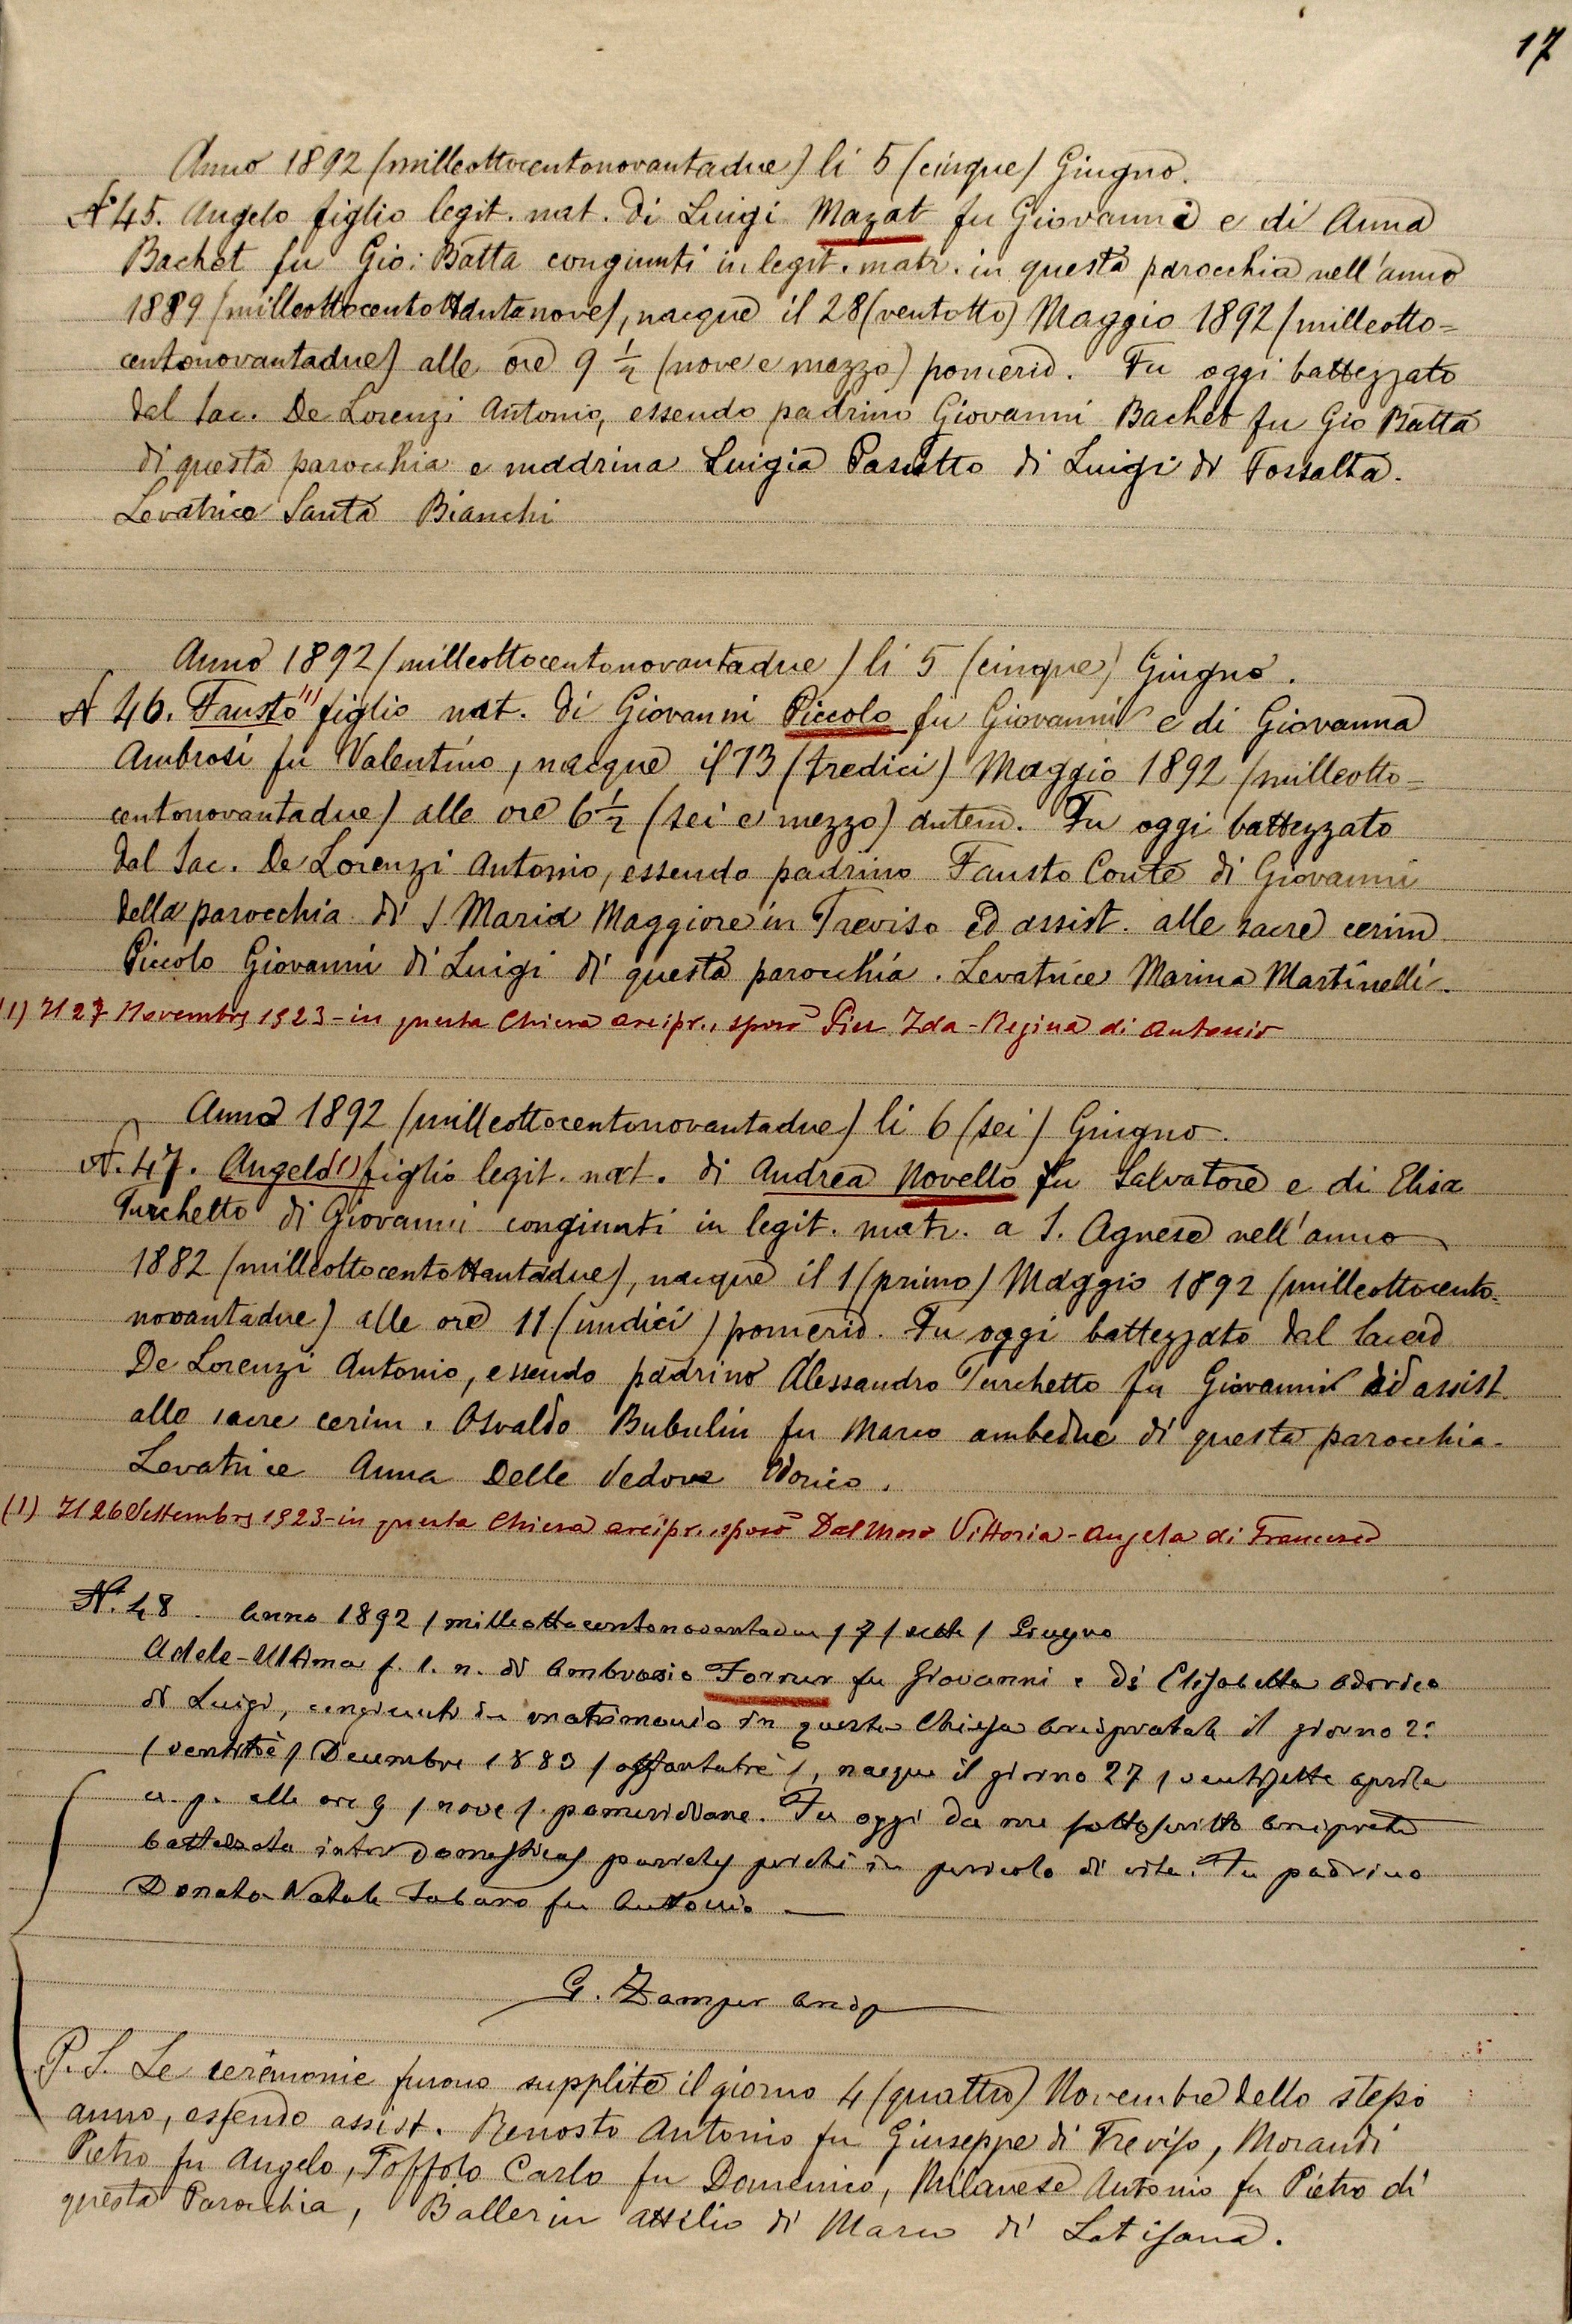 17
Anno 1892 (milleottocentonovantadue) li 5 (cinque) Giugno.
N° 45. Angelo figlio legit. nat. di Luigi Mazat fu Giovanni e di Anna
Bachet fu Gio: Batta congiunti in legit. matr. in questa parocchia nell'anno
1889 (milleottocentottantanove), nacque il 28 (ventotto) Maggio 1892 (milleotto=
centonovantadue) alle ore 9 1/2 (nove e mezzo) pomerid. Fu oggi battezzato
dal Sac. De Lorenzi Antonio, essendo padrino Giovanni Bachet fu Gio Batta
di questa parocchia e madrina Luigia Pasutto di Luigi di Fossalta.
Levatrice Santa Bianchi
Anno 1892 (milleottocentonovantadue) li 5 (cinque) Giugno.
N 46. Fausto (1) figlio nat. di Giovanni Piccolo fu Giovanni e di Giovanna
Ambrosi fu Valentino, nacque il 13 (tredici) Maggio 1892 (milleotto=
centonovantadue) alle ore 6 1/2 (sei e mezzo) antem. Fu oggi battezzato
dal Sac. De Lorenzi Antonio, essendo padrino Fausto Conte di Giovanni
della parocchia di S. Maria Maggiore in Treviso ed assist. alle sacre cerim
Piccolo Giovanni di Luigi di questa parocchia. Levatrice Marina Martinelli.
(1) Il 27 Novembre 1923 - in questa Chiesa arcipr., sposò Pin Ida - Regina di Antonio
Anno 1892 (milleottocentonovantadue) li 6 (sei) Giugno.
N. 47. Angelo (1) figlio legit. nat. di Andrea Novello fu Salvatore e di Elisa
Turchetto di Giovanni congiunti in legit. matr. a S. Agnese nell'anno
1882 (milleottocentottantadue), nacque il 1 (primo) Maggio 1892 (milleottocento=
novantadue) alle ore 11 (undici) pomerid. Fu oggi battezzato dal Sacerd
De Lorenzi Antonio, essendo padrino Alessandro Turchetto fu Giovanni ed assist.
alle sacre cerim. Osvaldo Bubulin fu Marco ambedue di questa parocchia.
Levatrice Anna Delle Vedove Odorico.
(1) Il 26 Settembre 1923 - in questa Chiesa arcipr., sposò Dal Moro Vittoria - Angela di Francesco
N. 48. Anno 1892 (milleottocentonovantadue) 7 (sette) Giugno
Adele-Ultima f. l. n. di Ambrosio Forrer fu Giovanni e di Elisabetta Odorico
di Luigi, congiunti in matrimonio in questa Chiesa Arcipretale il giorno
(ventitrè) Decembre 1883 (ottantatrè), nacque il giorno 27 (ventisette Aprile
a. p. alle ore 9 (nove) pomeridiane. Fu oggi da me sottoscritto Arciprete
battezzata inter domesticas parietes perchè in pericolo di vita. Fu padrino
Donato Natale Tabaro fu Antonio
G. Zamper Arcip
P. S. Le cerimonie furono supplite il giorno 4 (quattro) Novembre dello stesso
anno, essendo assist. Renosto Antonio fu Giuseppe di Treviso, Morandi
Pietro fu Angelo, Toffolo Carlo fu Domenico, Milanese Antonio fu Pietro di
questa Parocchia, Ballerin Attilio di Marco di Latisana.